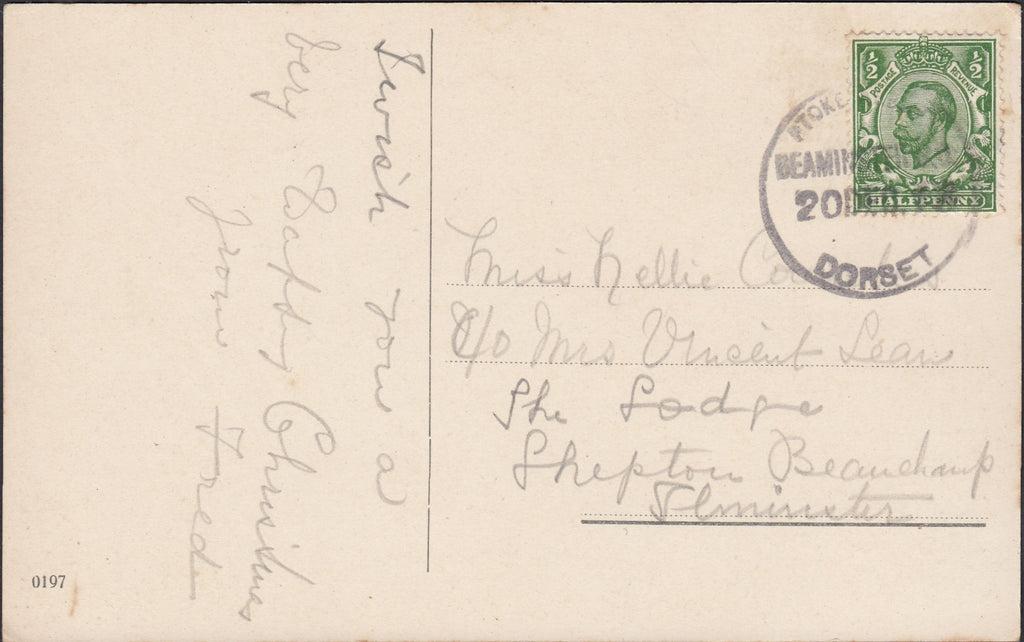 I wish you a
very Happy Christmas
from Fred
½ ½
POSTAGE REVENUE
HALFPENNY
STOKE
BEAMIN
20 DE
DORSET
Miss Nellie
C/o Mrs Vincent Lean
The Lodge
Shepton Beauchamp
Ilminster
0197